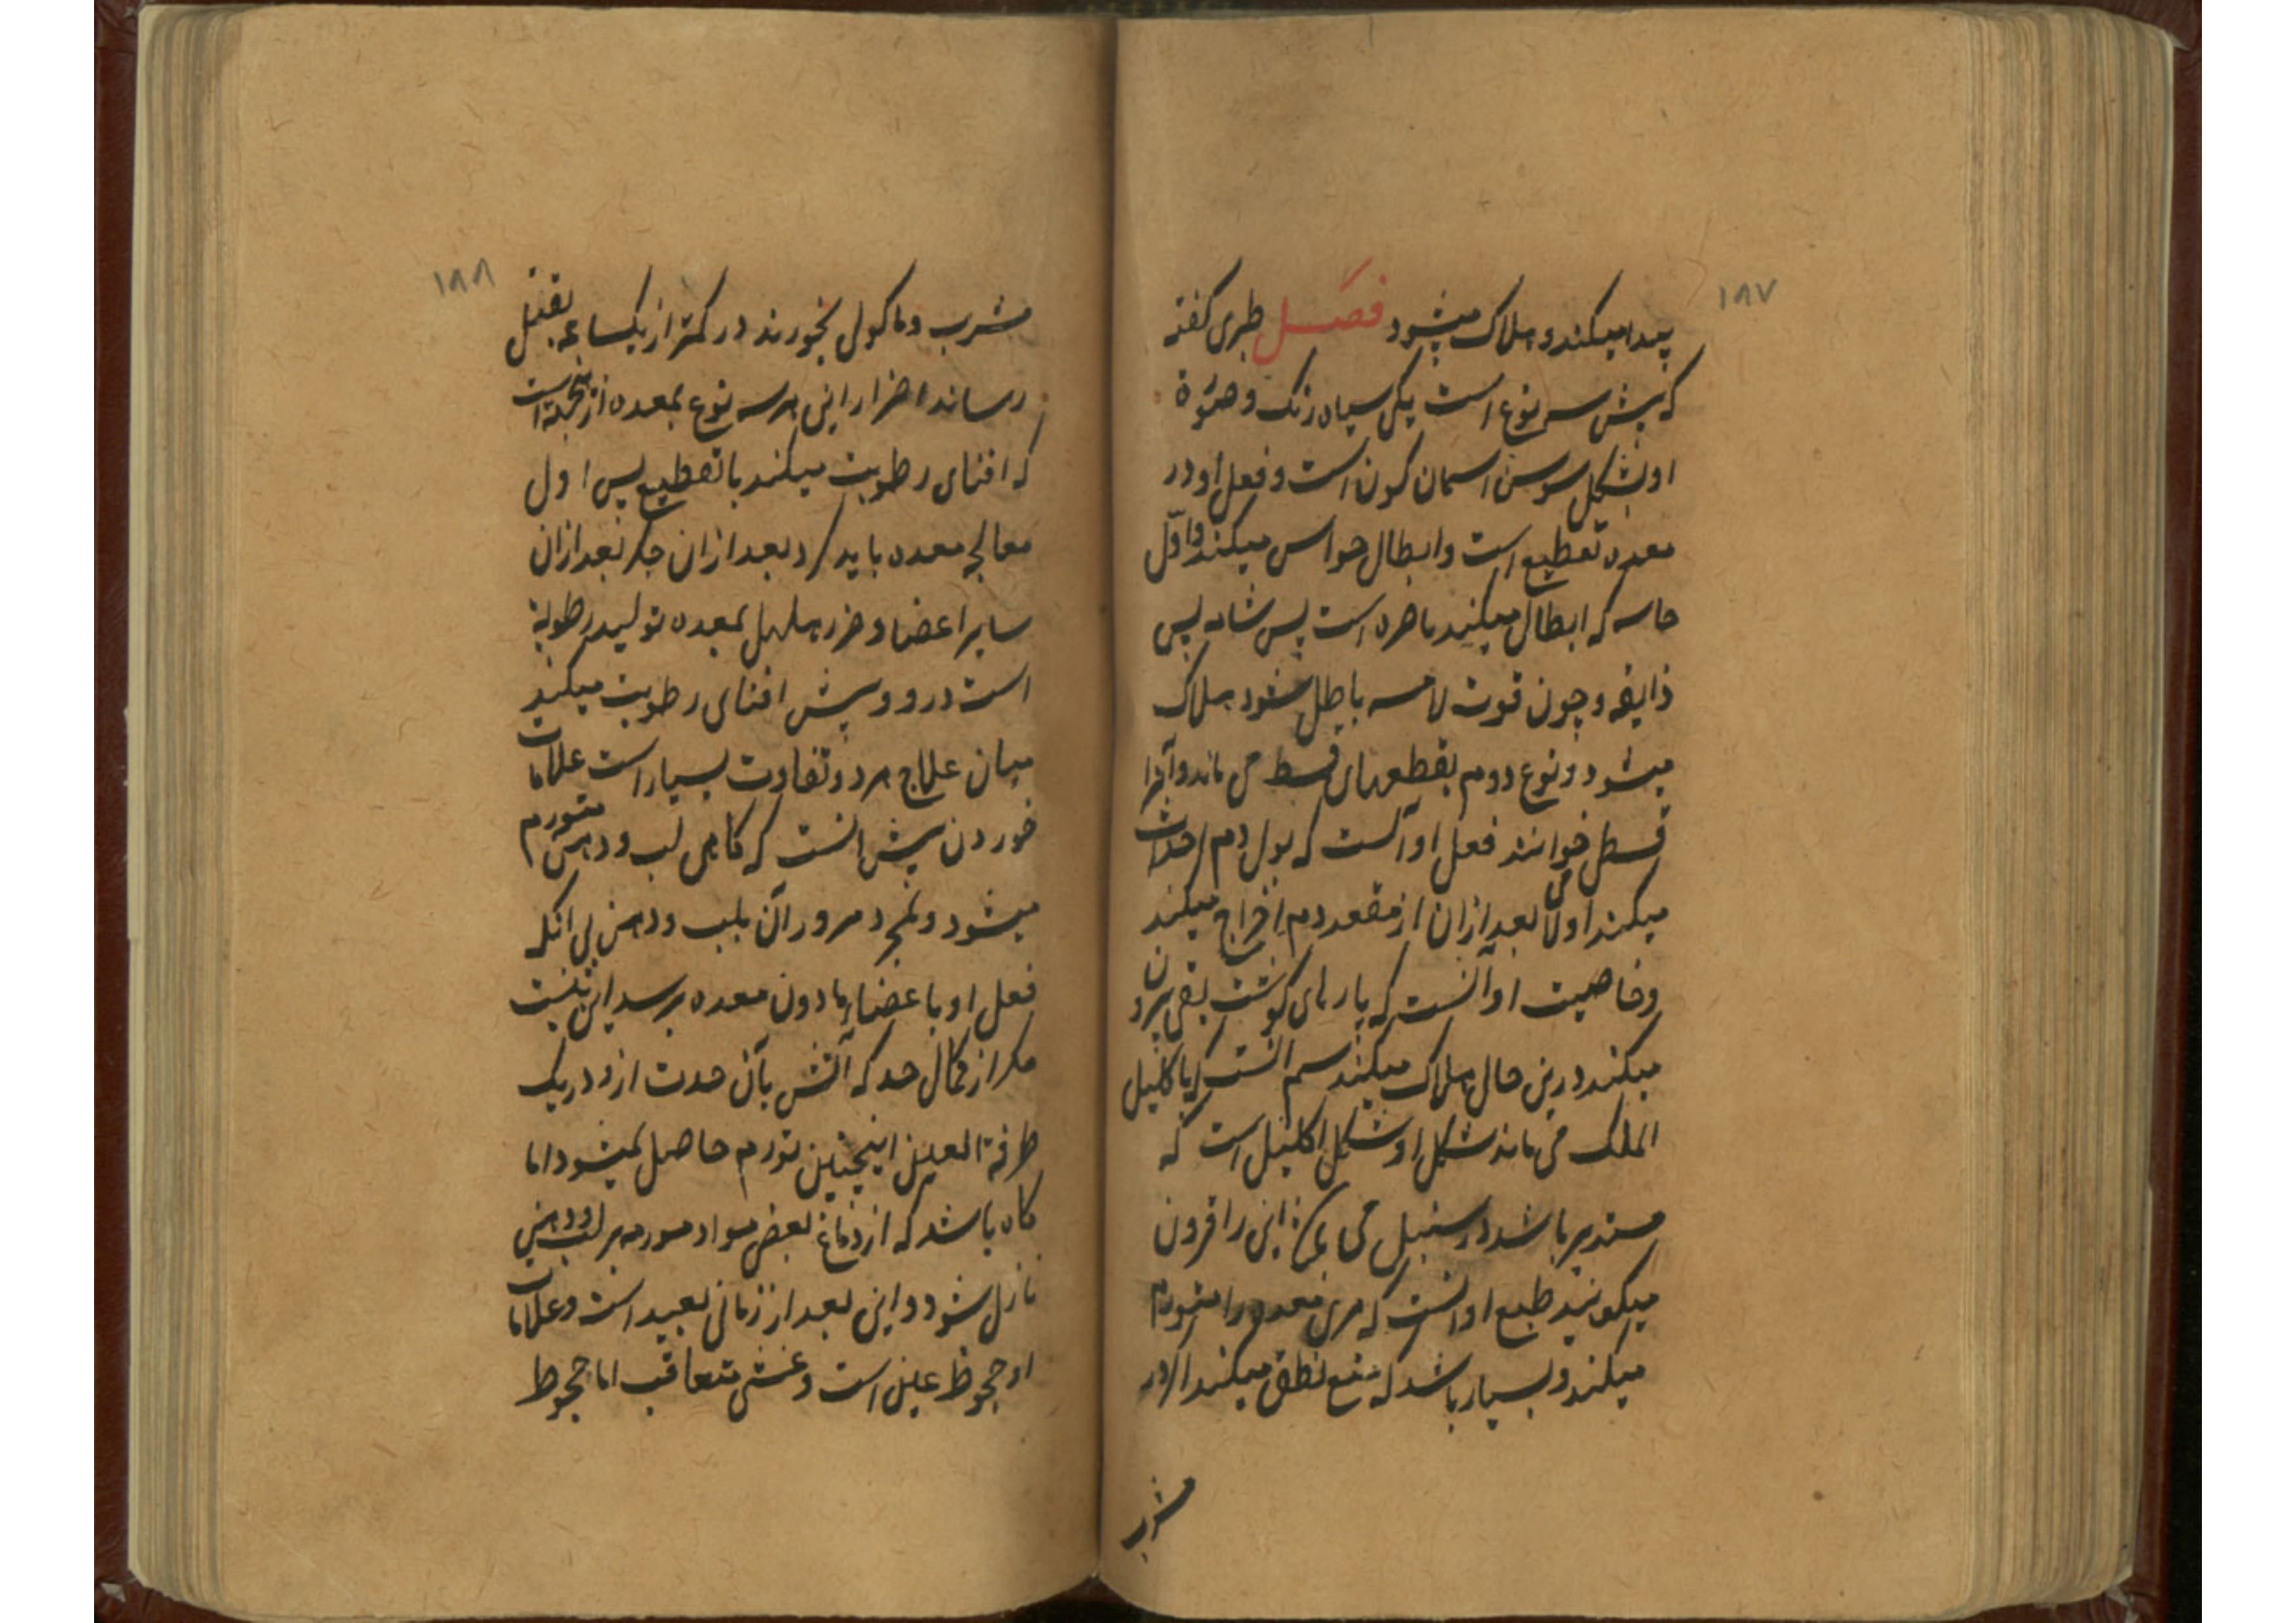 ۱۸۷
پیدا میکند و هلاک میشود فصل طبری کفته
که بیش سه نوع است یکی سیاه رنک و صورة
او بشکل سوسن اسمان کون است و فعل او در
معده تقطیع است و ابطال حواس میکند و اول
حاسه که ابطال میکند باصره است پس شامه پس
ذایقه و چون قوت لامسه باطل شود هلاک
میشود و نوع دوم بقطعهای قسط می ماند و آنرا
قسط خوانند فعل او آنست که بول دم احداث
میکند اولا بعد ازان از مقعد دم اخراج میکند
و خاصیت او آنست که پارهای کوشت بقی بیرون
میکند درین حال هلاک میکند سیم انست که باکلیل
الملک می ماند شکل او شکل اکلیل است که
مستدیر باشد در سنبل می این را قرون
میکویند طبع او انست که مری معده را متورم
میکند و بسیار باشد که منع نطق میکند اگر در
مشرب
۱۸۸
مشرب و ماکول بخورند در کمتر از یکساعه بقتل
رساند اضرار این هرسه نوع بمعده ازینجهة است
که افنای رطوبت میکند با تقطیع پس اول
معالجه معده باید کرد بعد ازان جکر بعد ازان
سایر اعضا و ضرر هلهل بمعده تولید رطوبة
است درو و بیش افنای رطوبت میکند
میان علاج هردو تفاوت بسیار است علامات
خوردن بیش انست که کاهی لب و دهن متورم
میشود و بمجرد مرور آن بلب و دهن بی انکه
فعل او با عضاء مادون معده برسد این نیست
مکر از کمال حد که آتش بآن حدت ازو در یک
طرفة العین اینچنین تورم حاصل نمیشود اما
کاه باشد که از دماغ بعض مواد مورمه بر لب و دهن
نازل شود و این بعد از زمانی بعید است و علامات
او جحوظ عین است و غشی متعاقب اما جحوظ